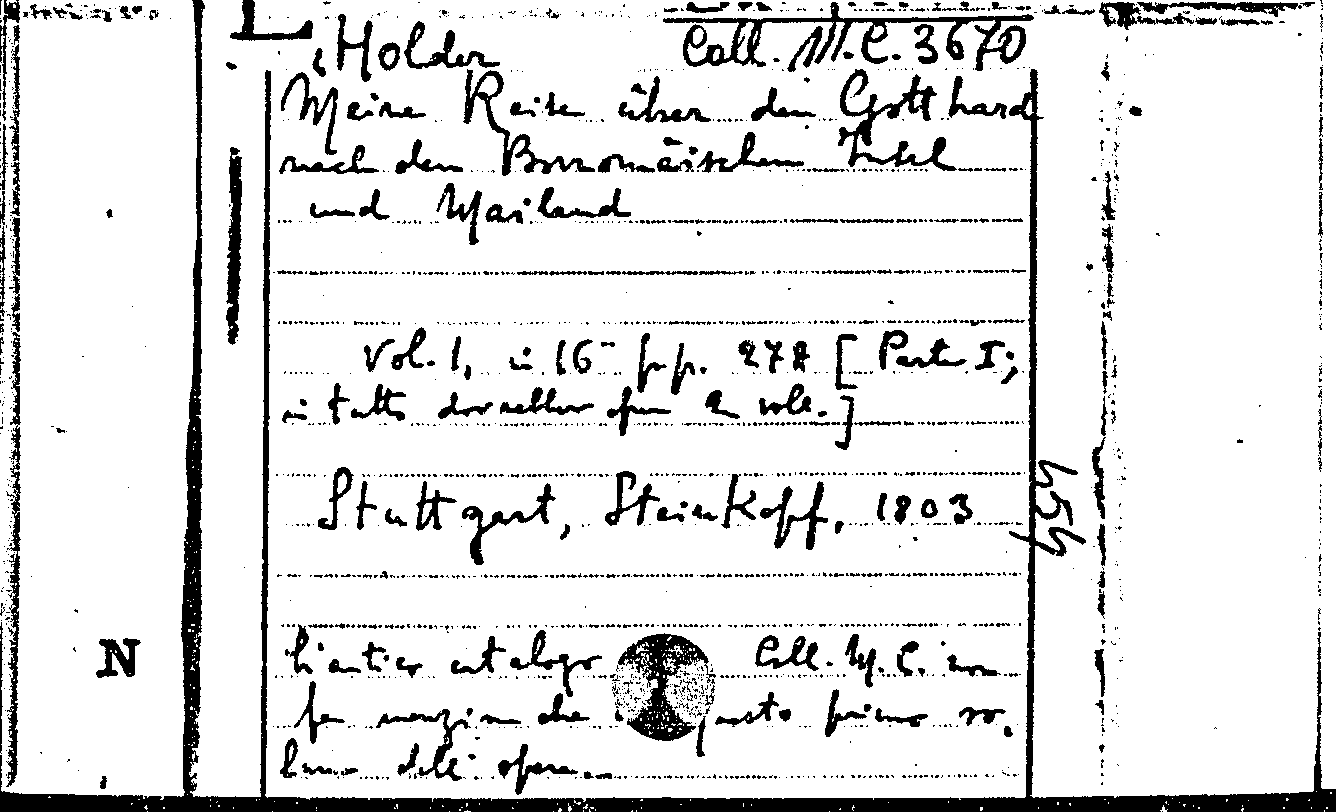 Holder Coll. M.C. 3670
Meine Reise über den Gotthard
nach den Borromäischen Insel
und Mailand
Vol. 1, in 16° pp. 278 [Parte I;
in tutto dovrebbero essere 2 voll.]
Stuttgart, Steinkopf, 1803
454
L'antico catalogo Coll. M. C. non
fa menzione che questo primo vo-
lume dell' opera.
N